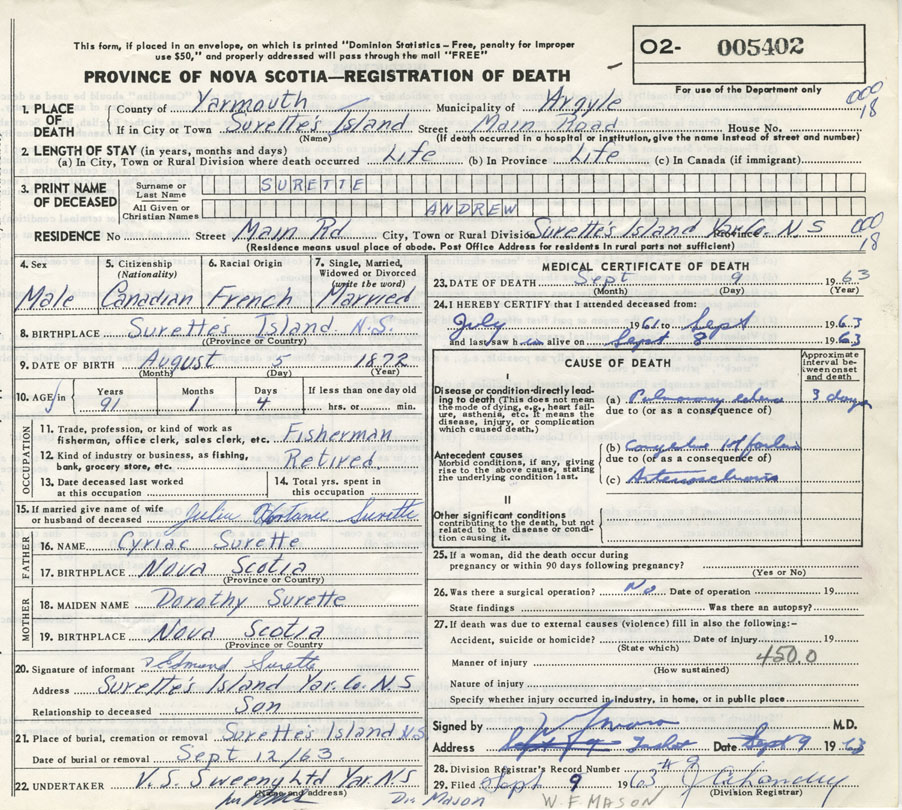 This form, if placed in an envelope, on which is printed "Dominion Statistics – Free, penalty for improper
use $50," and properly addressed will pass through the mail "FREE"
O2- 005402
PROVINCE OF NOVA SCOTIA—REGISTRATION OF DEATH
For use of the Department only
1. PLACE OF DEATH
County of Yarmouth Municipality of Argyle
000
18
If in City or Town Surette's Island Street Main Road House No.
(Name) (If death occurred in a hospital or institution, give the name instead of street and number)
2. LENGTH OF STAY (in years, months and days)
(a) In City, Town or Rural Division where death occurred Life (b) In Province Life (c) In Canada (if immigrant)
3. PRINT NAME OF DECEASED
Surname or Last Name SURETTE
All Given or Christian Names ANDREW
RESIDENCE No Street Main Rd City, Town or Rural Division Surette's Island Yar.Co. N S
000
18
(Residence means usual place of abode. Post Office Address for residents in rural parts not sufficient)
4. Sex
Male
5. Citizenship (Nationality)
Canadian
6. Racial Origin
French
7. Single, Married, Widowed or Divorced (write the word)
Married
8. BIRTHPLACE Surette's Island N.S.
(Province or Country)
9. DATE OF BIRTH August 5 1872
(Month) (Day) (Year)
10. AGE in
Years 91
Months 1
Days 4
If less than one day old
hrs. or min.
OCCUPATION
11. Trade, profession or kind of work as fisherman, office clerk, sales clerk, etc. Fisherman
12. Kind of industry or business, as fishing, bank, grocery store, etc. Retired
13. Date deceased last worked at this occupation
14. Total yrs. spent in this occupation
15. If married give name of wife or husband of deceased Julie Hortance Surette
FATHER
16. NAME Cyriac Surette
17. BIRTHPLACE Nova Scotia
(Province or Country)
MOTHER
18. MAIDEN NAME Dorothy Surette
19. BIRTHPLACE Nova Scotia
(Province or Country)
20. Signature of informant Edmund Surette
Address Surette's Island Yar.Co. N S
Relationship to deceased Son
21. Place of burial, cremation or removal Surette's Island N.S
Date of burial or removal Sept 12/63
22. UNDERTAKER V.S. Sweeny Ltd Yar. N S
(Name and address)
MEDICAL CERTIFICATE OF DEATH
23. DATE OF DEATH Sept 9 1963
(Month) (Day) (Year)
24. I HEREBY CERTIFY that I attended deceased from:
July 1961 to Sept 1963
and last saw him alive on Sept 8 1963
CAUSE OF DEATH
Approximate interval between onset and death
I
Disease or condition directly leading to death (This does not mean the mode of dying, e.g., heart failure, asthenia, etc. It means the disease, injury, or complication which caused death.)
(a) Pulmonary edema 3 days
due to (or as a consequence of)
Antecedent causes
Morbid conditions, if any, giving rise to the above cause, stating the underlying condition last.
(b)
due to (or as a consequence of)
(c) Arteriosclerosis
II
Other significant conditions contributing to the death, but not related to the disease or condition causing it.
25. If a woman, did the death occur during pregnancy or within 90 days following pregnancy?
(Yes or No)
26. Was there a surgical operation? No Date of operation 19
State findings Was there an autopsy?
27. If death was due to external causes (violence) fill in also the following:-
Accident, suicide or homicide? Date of injury 19
(State which)
Manner of injury 450.0
(How sustained)
Nature of injury
Specify whether injury occurred in industry, in home, or in public place
Signed by M.D.
Address Tusket Date Sept 9 1963
28. Division Registrar's Record Number # 9
29. Filed Sept 9 1963
(Division Registrar)
Dr. Mason
W. F. MASON